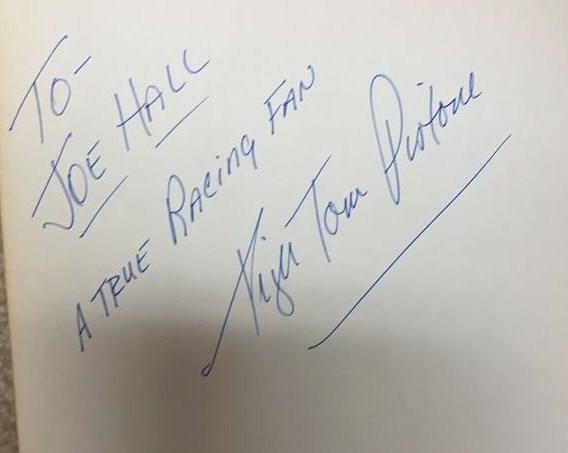 TO-
JOE HALL
A TRUE RACING FAN
Tiger Tom Pistone